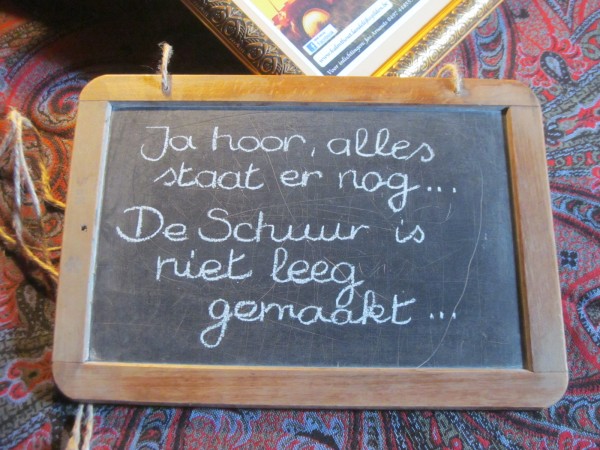 Ja hoor, alles
staat er nog...
De Schuur is
niet leeg
gemaakt...